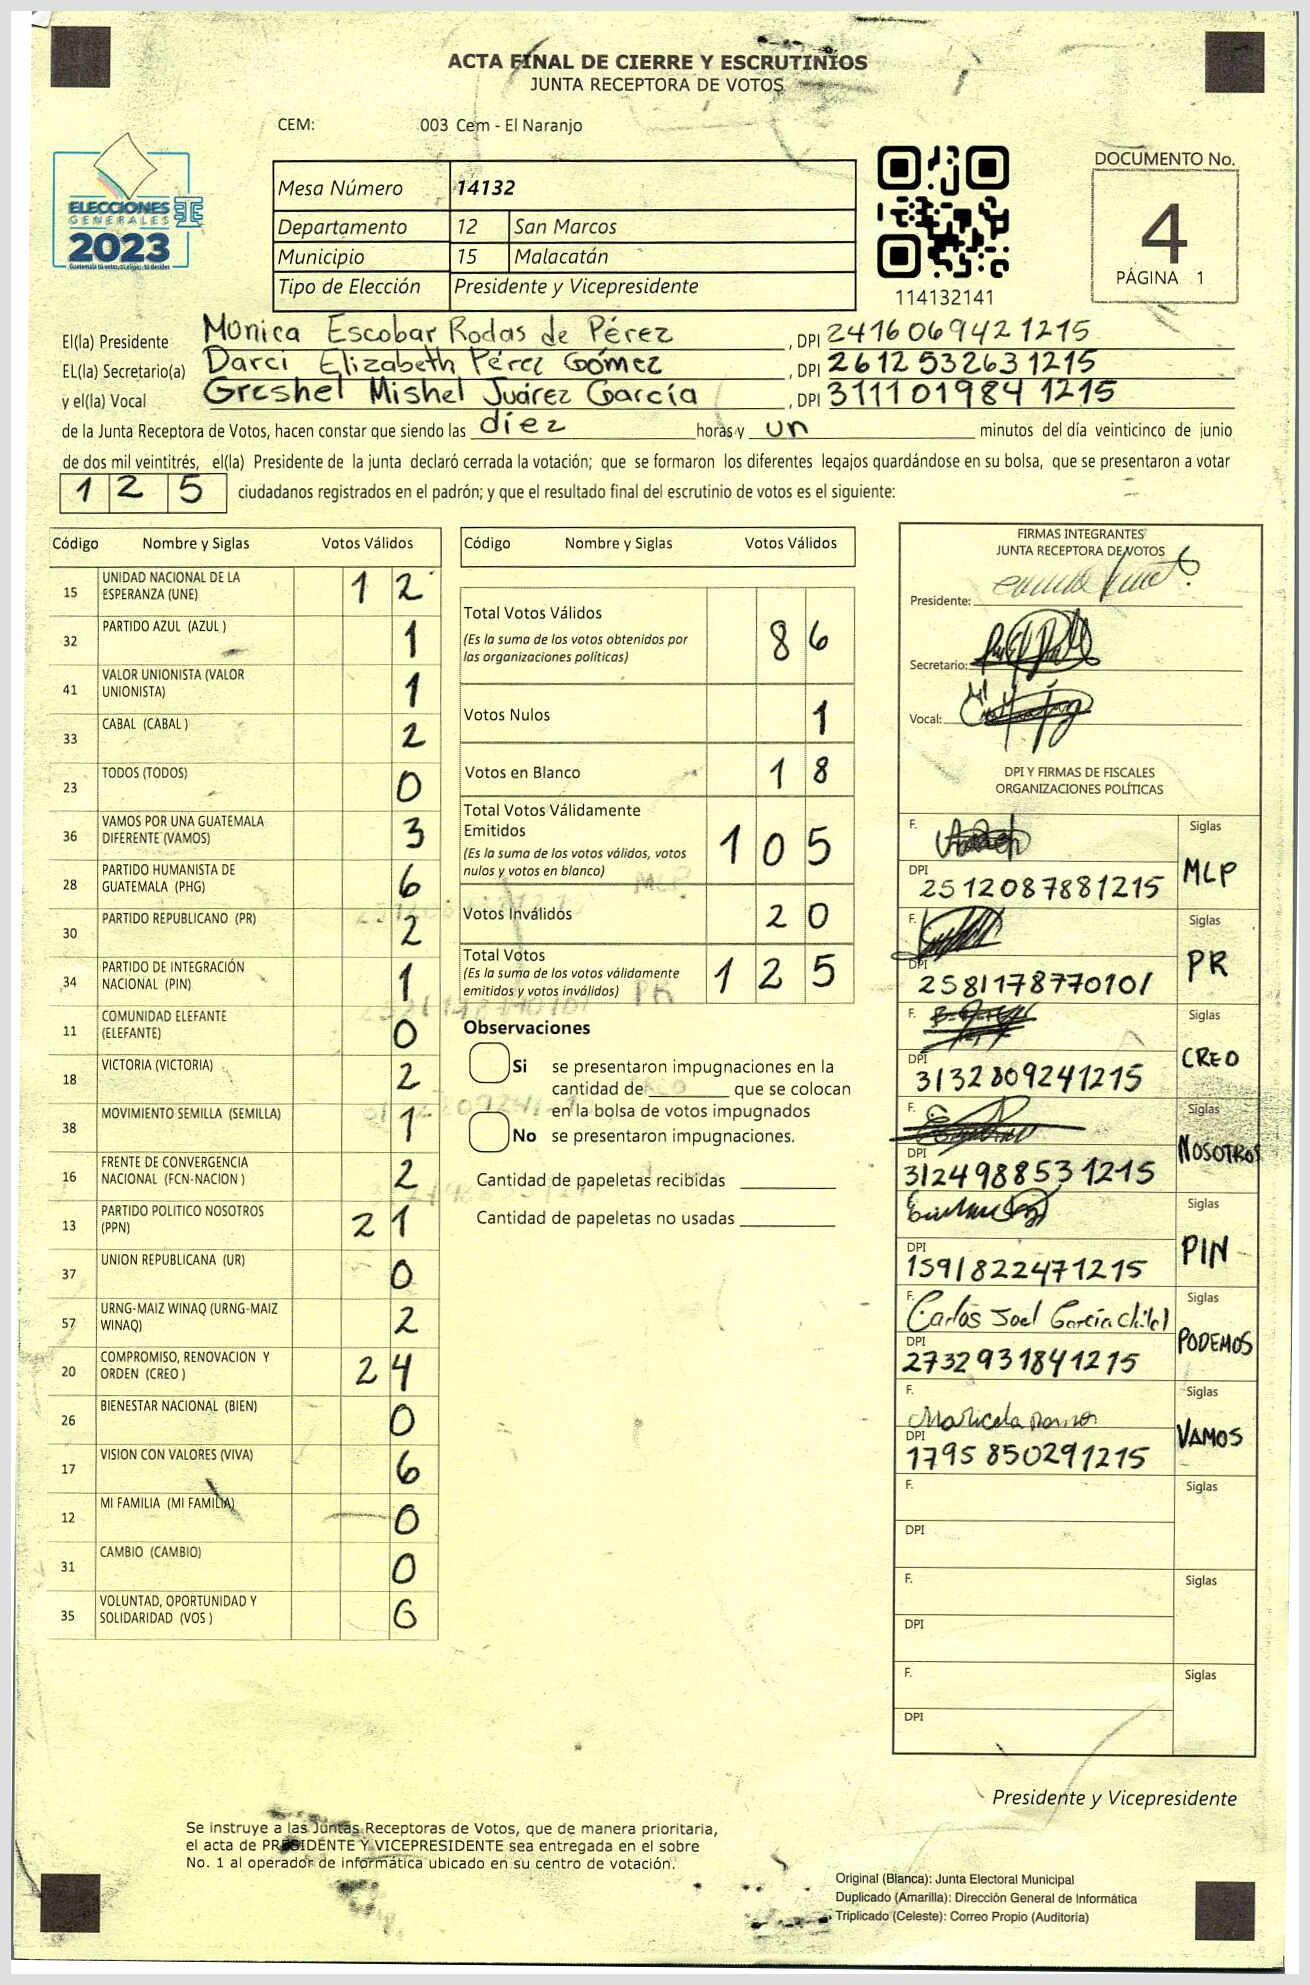 ACTA FINAL DE CIERRE Y ESCRUTINIOS
JUNTA RECEPTORA DE VOTOS
CEM: 003 Cem - El Naranjo
ELECCIONES
GENERALES
2023
Guatemala tú votas, tú eliges, tú decides
Mesa Número 14132
Departamento 12 San Marcos
Municipio 15 Malacatán
Tipo de Elección Presidente y Vicepresidente
114132141
DOCUMENTO No.
4
PÁGINA 1
El(la) Presidente Monica Escobar Rodas de Pérez, DPI 2416069421215
EL(la) Secretario(a) Darci Elizabeth Pérez Gómez, DPI 2612532631215
y el(la) Vocal Greshel Mishel Juárez García, DPI 3111019841215
de la Junta Receptora de Votos, hacen constar que siendo las diez horas y un minutos del día veinticinco de junio
de dos mil veintitrés, el(la) Presidente de la junta declaró cerrada la votación; que se formaron los diferentes legajos guardándose en su bolsa, que se presentaron a votar
125 ciudadanos registrados en el padrón; y que el resultado final del escrutinio de votos es el siguiente:
Código Nombre y Siglas Votos Válidos
15 UNIDAD NACIONAL DE LA
ESPERANZA (UNE) 12
32 PARTIDO AZUL (AZUL ) 1
41 VALOR UNIONISTA (VALOR
UNIONISTA) 1
33 CABAL (CABAL ) 2
23 TODOS (TODOS) 0
36 VAMOS POR UNA GUATEMALA
DIFERENTE (VAMOS) 3
28 PARTIDO HUMANISTA DE
GUATEMALA (PHG) 6
30 PARTIDO REPUBLICANO (PR) 2
34 PARTIDO DE INTEGRACIÓN
NACIONAL (PIN) 1
11 COMUNIDAD ELEFANTE
(ELEFANTE) 0
18 VICTORIA (VICTORIA) 2
38 MOVIMIENTO SEMILLA (SEMILLA) 1
16 FRENTE DE CONVERGENCIA
NACIONAL (FCN-NACION ) 2
13 PARTIDO POLITICO NOSOTROS
(PPN) 21
37 UNION REPUBLICANA (UR) 0
57 URNG-MAIZ WINAQ (URNG-MAIZ
WINAQ) 2
20 COMPROMISO, RENOVACION Y
ORDEN (CREO ) 24
26 BIENESTAR NACIONAL (BIEN) 0
17 VISION CON VALORES (VIVA) 6
12 MI FAMILIA (MI FAMILIA) 0
31 CAMBIO (CAMBIO) 0
35 VOLUNTAD, OPORTUNIDAD Y
SOLIDARIDAD (VOS )
Código Nombre y Siglas Votos Válidos
Total Votos Válidos 86
(Es la suma de los votos obtenidos por
las organizaciones políticas)
Votos Nulos 1
Votos en Blanco 18
Total Votos Válidamente
Emitidos 105
(Es la suma de los votos válidos, votos
nulos y votos en blanco)
Votos Inválidos 20
Total Votos 125
(Es la suma de los votos válidamente
emitidos y votos inválidos)
Observaciones
Si se presentaron impugnaciones en la
cantidad de ________ que se colocan
en la bolsa de votos impugnados
No se presentaron impugnaciones.
Cantidad de papeletas recibidas
Cantidad de papeletas no usadas
FIRMAS INTEGRANTES
JUNTA RECEPTORA DE VOTOS
Presidente:
Secretario:
Vocal:
DPI Y FIRMAS DE FISCALES
ORGANIZACIONES POLÍTICAS
F. Siglas
DPI 2512087881215 MLP
F. Siglas
DPI 2581178770101 PR
F. Siglas
DPI 3132809241215 CREO
F. Siglas
DPI 3124988531215 NOSOTROS
F. Siglas
DPI 1591822471215 PIN
F. Carlos Joel García Siglas
DPI 2732931841215 PODEMOS
F. Maricela Ramos Siglas
DPI 1795850291215 VAMOS
F. Siglas
DPI
F. Siglas
DPI
F. Siglas
DPI
Presidente y Vicepresidente
Se instruye a las Juntas Receptoras de Votos, que de manera prioritaria,
el acta de PRESIDENTE Y VICEPRESIDENTE sea entregada en el sobre
No. 1 al operador de informática ubicado en su centro de votación.
Original (Blanca): Junta Electoral Municipal
Duplicado (Amarilla): Dirección General de Informática
Triplicado (Celeste): Correo Propio (Auditoría)